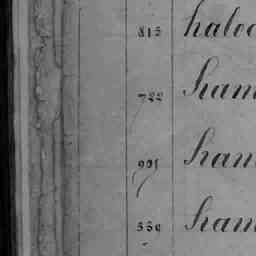 815 haloc
722 ham
991 han
550 ham